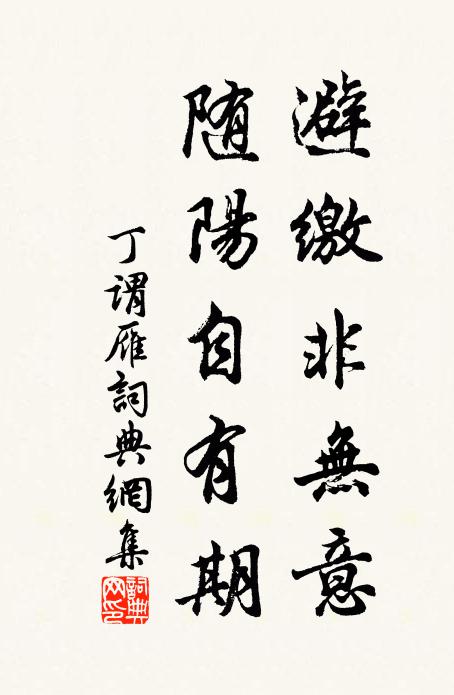 避繳非無意
随陽自有期
丁謂雁詞典網集
詞典網印